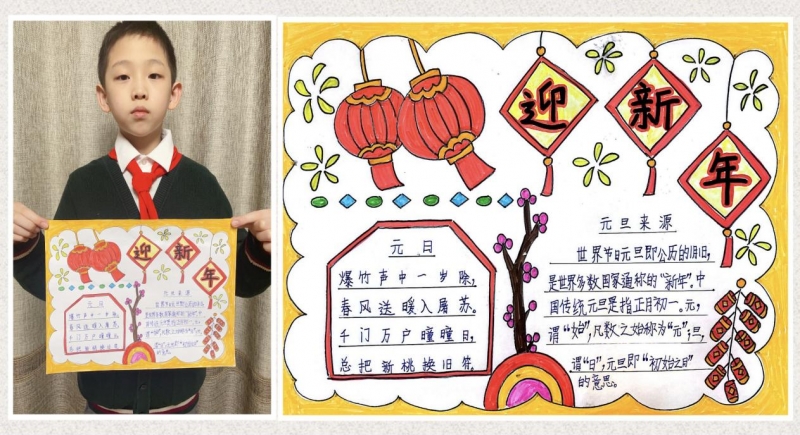 迎新年
元日
爆竹声中一岁除,
春风送暖入屠苏。
千门万户曈曈日,
总把新桃换旧符。
元旦来源
世界节日元旦即公历的1月1日,
是世界多数国家通称的“新年”。中
国传统元旦是指正月初一。元,
谓“始”,凡数之始称为“元”;旦,
谓“日”,元旦即“初始之日”
的意思。